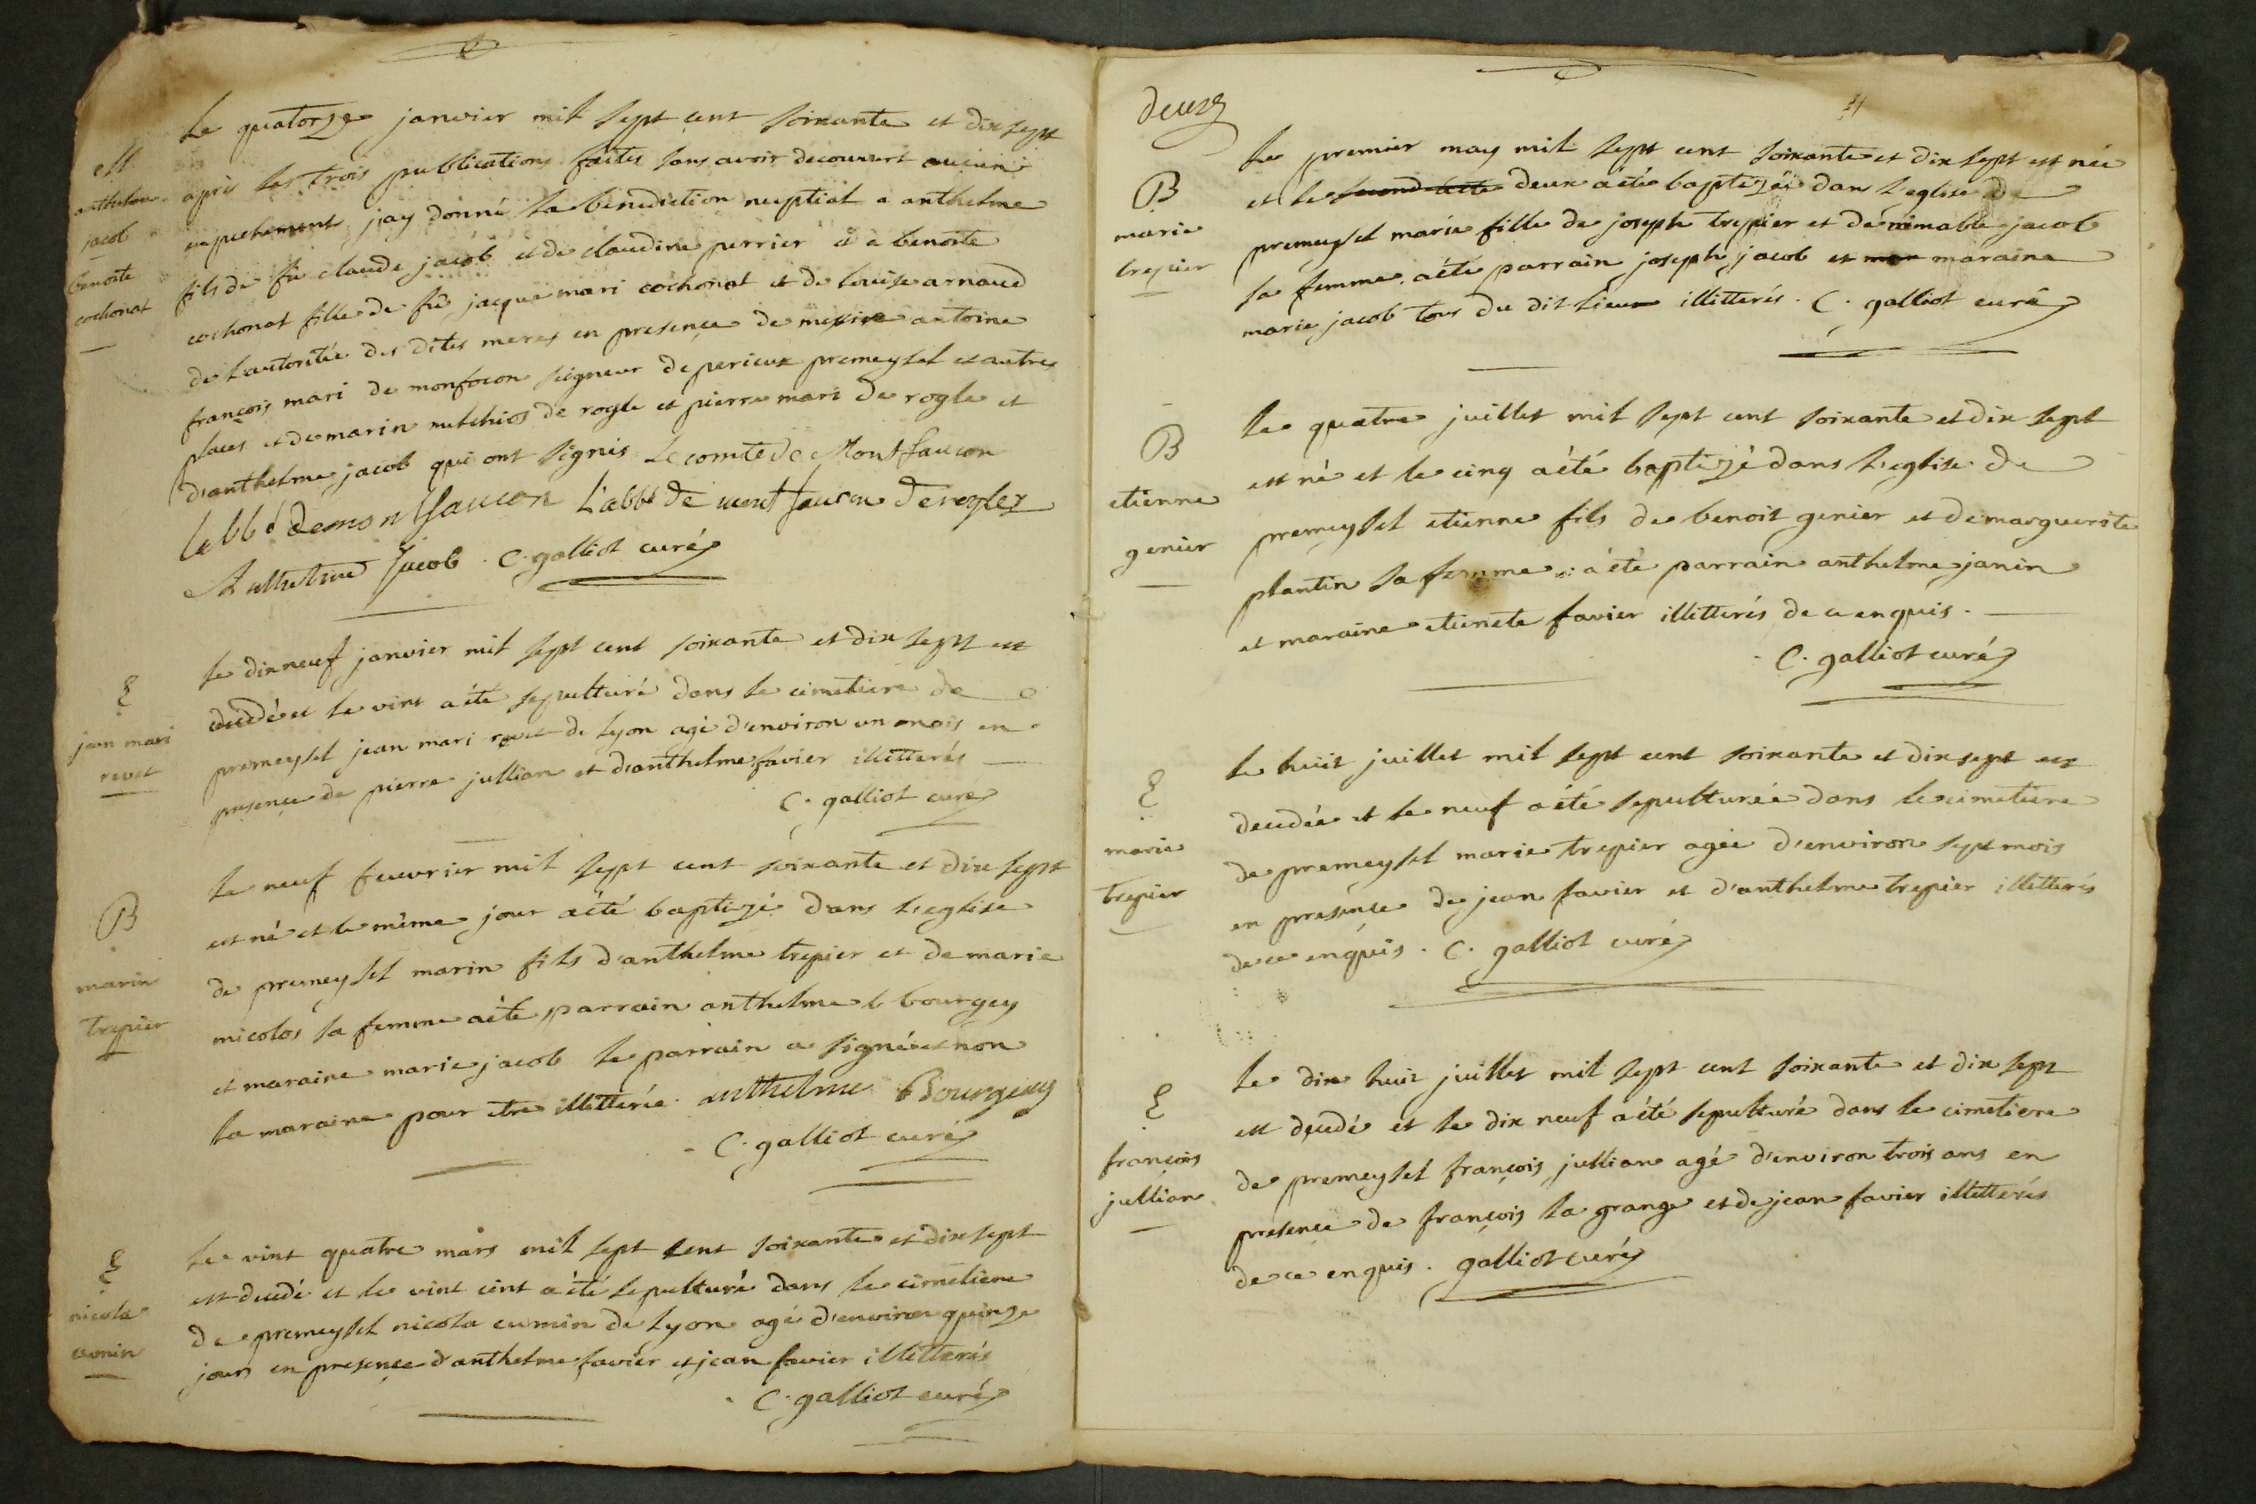 M
anthelme
jacob
benoite
cochonat
Le quatorze janvier mil sept cent soixante et dix sept
apris les trois publications faites sans avoir decouvert aucun
enpechement jay donné la benediction nuptial a anthelme
fils de fû claude jacob et de claudine perrier et a benoite
cochonat fille de fû jacque mari cochonat et de louise arnaud
de l'autoritée des dites meres en presence de messire antoine
françois mari de monfocon seigneur de perieux premeysel et autres
places et de marin melchior de rogle et pierre mari de rogle et
d'anthelme jacob qui ont signés Le comte de Montfaucon
labbé demonfaucon L'abbé de montfaucon de rogles
Anthelme Jacob . C. galliot curé
S
jean mari
revet
le dixneuf janvier mil sept cent soixante et dix sept est
decedé et le vint a été sepulturé dans le cimetiere de
premeysel jean mari revet de lyon agé d'environ un mois en
presence de pierre jullian et d'anthelme favier illitterés
C. galliot curé
B
marin
trepier
le neuf feuvrier mil sept cent soixante et dix sept
est né et le même jour a été baptizé dans l'eglise
de premeysel marin fils d'anthelme trepier et de marie
nicolas sa femme a été parrain anthelme b bourgey
et maraine marie jacob le parrain a signé et non
la maraine pour etre illitterée . anthelme Bourgeuy
C. galliot curé
S
nicola
cumin
le vint quatre mars mil sept cent soixante et dix sept
est decedé et le vint cint a été sepulturé dans le cimetiere
de premeysel nicola cumin de lyon agé d'environ quinze
jours en presence d'anthelme favier et jean favier illitterés
C. galliot curé
deuxe
B
marie
trepier
le premier may mil sept cent soixante et dix sept est née
et le second a été deux a été baptizée dans l'eglise de
premeysel marie fille de joseph trepier et de nimable jacob
sa femme. a été parrain joseph jacob et mar maraine
marie jacob tous du dit lieux illitterés . C. galliot curé
B
etienne
genier
le quatre juillet mil sept cent soixante et dix sept
est né et le cinq a été baptizé dans l'eglise de
premeysel etienne fils de benoit genier et de marguerite
plantin sa femme . a été parrain anthelme janin
et maraine etienete favier illitterés de ce enquis .
C. galliot curé
S
marie
trepier
le huit juillet mil sept cent soixante et dix sept est
decedée et le neuf a été sepulturée dans le cimetiere
de premeysel marie trepier agée d'environ sept mois
en presence de jean favier et d'anthelme trepier illitterés
de ce enquis . C. galliot curé
S
françois
jullian
le dix huit juillet mil sept cent soixante et dix sept
est decedé et le dix neuf a été sepulturé dans le cimetiere
de premeysel françois jullian agé d'environ trois ans en
presence de françois la grange et de jean favier illitterés
de ce enquis . galliot curé